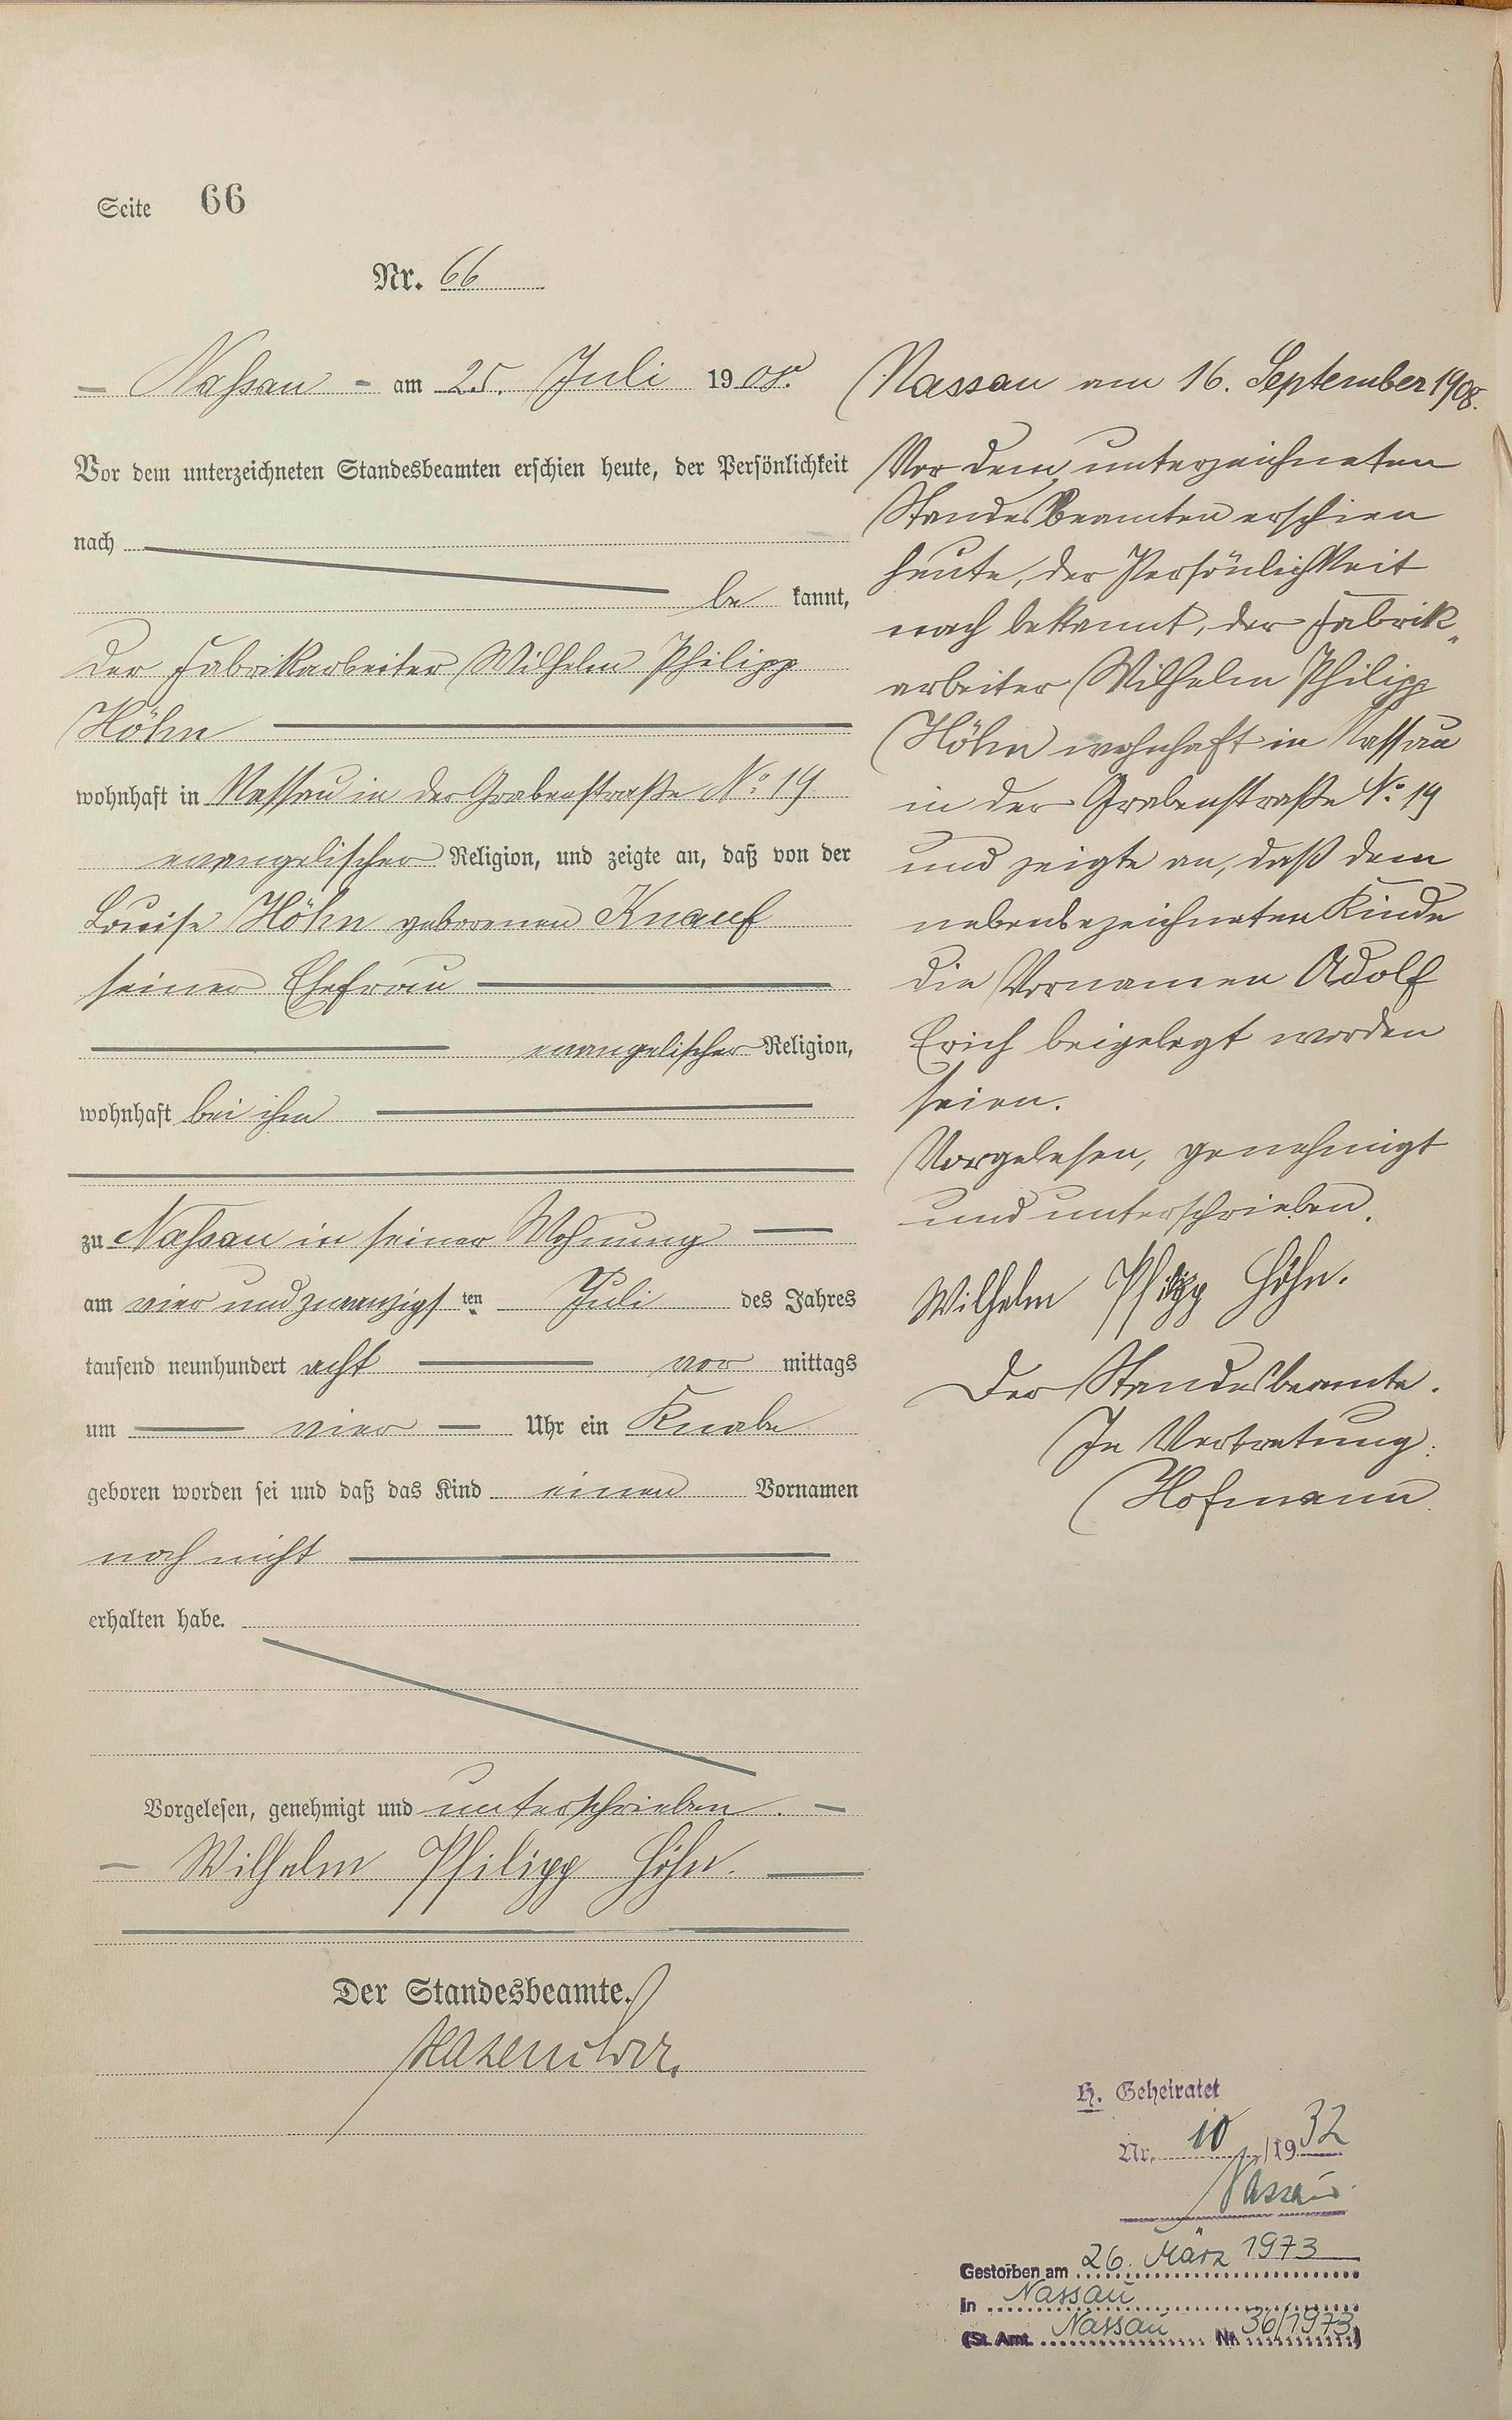 Seite 66
Nr. 66
- Nassau - am 25. Juli 1908.
Vor dem unterzeichneten Standesbeamten erschien heute, der Persönlichkeit
nach
be kannt,
der Fabrikarbeiter Wilhelm Philipp
Höhn
wohnhaft in Nassau in der Grabenstraße No. 19
evangelischer Religion, und zeigte an, daß von der
Louise Höhn geborenen Knauf
seiner Ehefrau
evangelischer Religion,
wohnhaft bei ihm
zu Nassau in seiner Wohnung
am vier und zwanzigsten Juli des Jahres
tausend neunhundert acht vor mittags
um vier Uhr ein Knabe
geboren worden sei und daß das Kind einen Vornamen
noch nicht
erhalten habe.
Vorgelesen, genehmigt und unterschrieben. -
- Wilhelm Philipp Höhn.
Der Standesbeamte.
Nassau am 16. September 1908.
Vor dem unterzeichneten
Standesbeamten erschien
heute, der Persönlichkeit
nach bekannt, der Fabrik„
arbeiter Wilhelm Philipp
Höhn wohnhaft in Nassau
in der Grabenstraße No. 19
und zeigte an, daß dem
nebenbezeichneten Kinde
die Vornamen Adolf
Erich beigelegt worden
seien.
Vorgelesen, genehmigt
und unterschrieben.
Wilhelm Philipp Höhn.
Der Standesbeamte.
In Vertretung:
Hofmann
H. Geheiratet
Nr. 10 / 1932
Nassau.
Gestorben am 26. März 1973
in Nassau
(St. Amt. Nassau Nr. 36/1973)